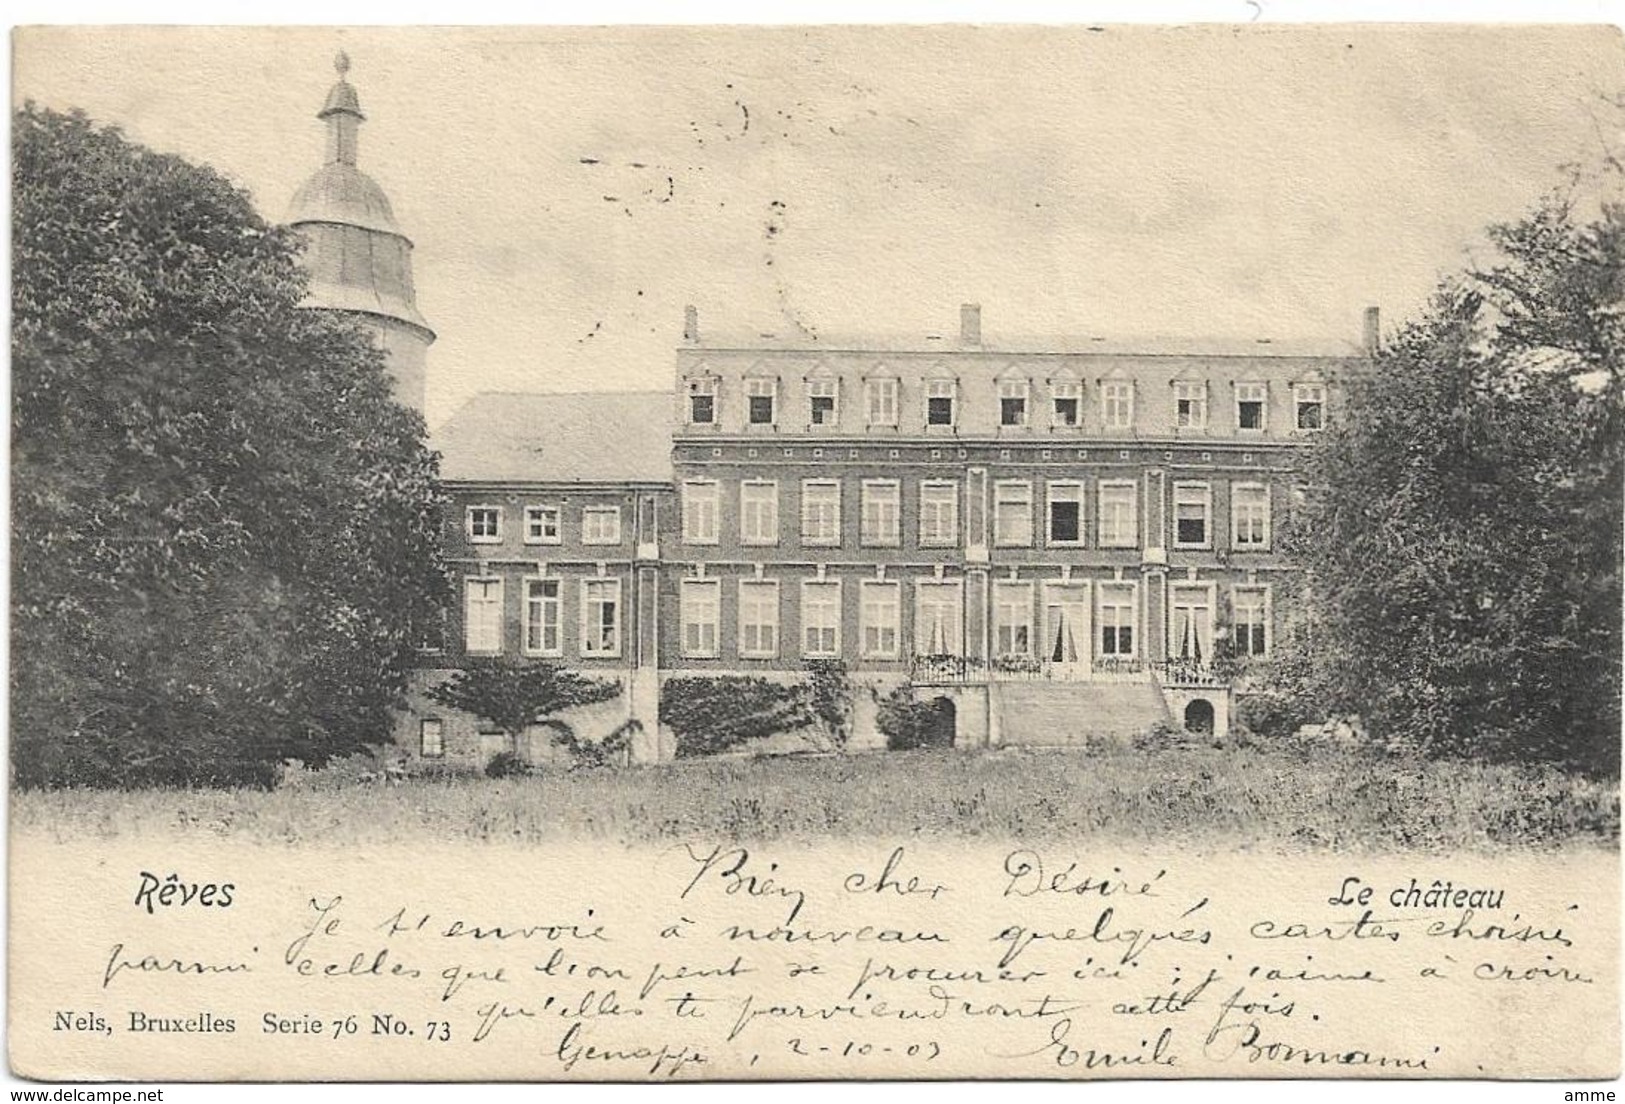 Rêves
Bien cher Désiré,
Le château
Je t'envoie à nouveau quelques cartes choisies
parmi celles que l'on peut se procurer ici ; j'aime à croire
qu'elles te parviendront cette fois.
Nels, Bruxelles Serie 76 No. 73
Genappe, 2-10-03 Emile Bonnami.
delcampe.net
amme